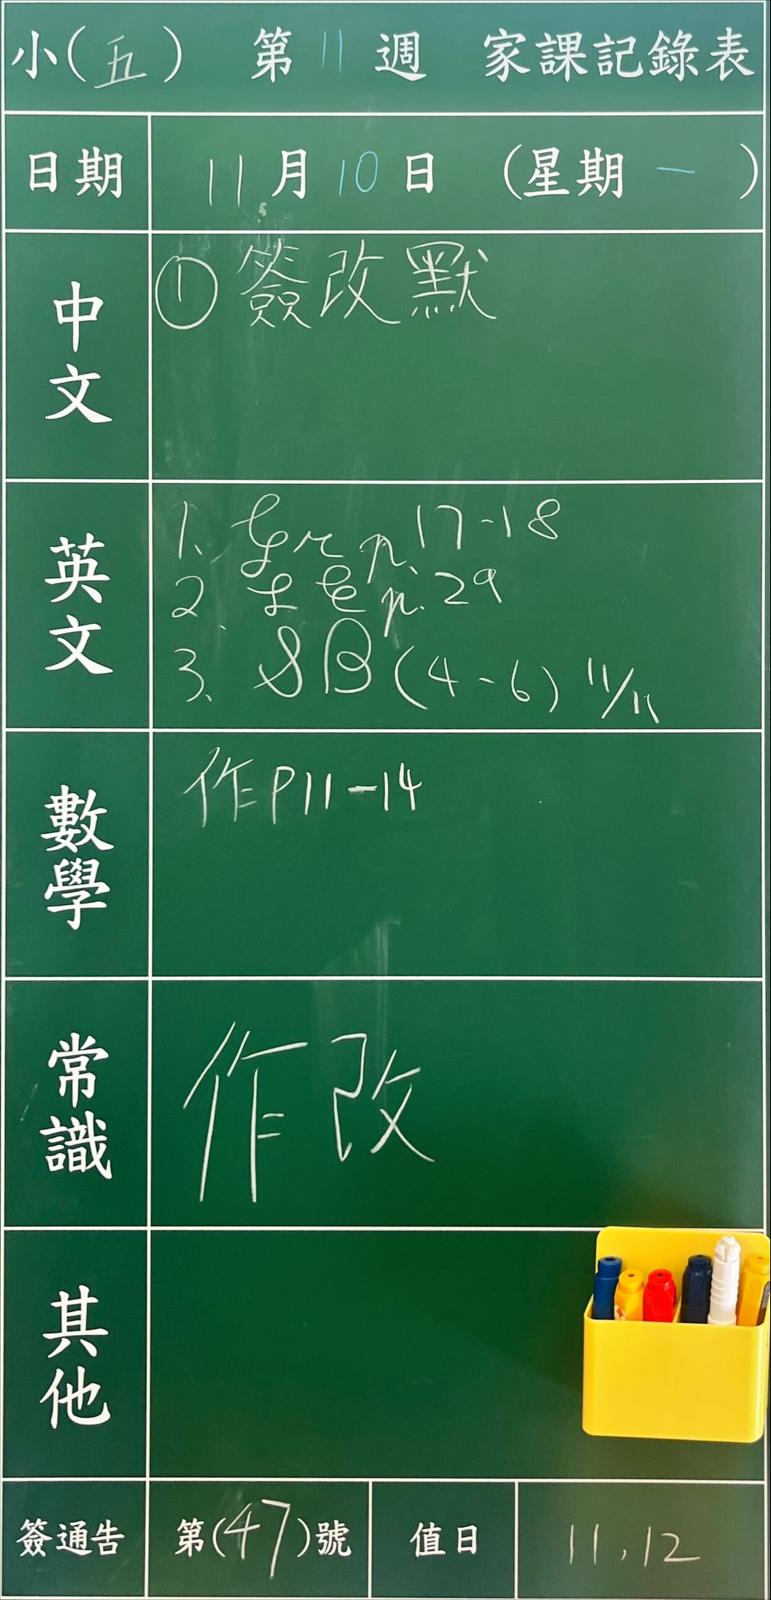 小(五) 第11週 家課記錄表
日期 11月10日 (星期一)
中文
① 簽改默
英文
1. Gr p.17-18
2. LE p.29
3. SB (4-6) 11/11
數學
作P11-14
常識
作改
其他
簽通告 第(47)號 值日 11,12